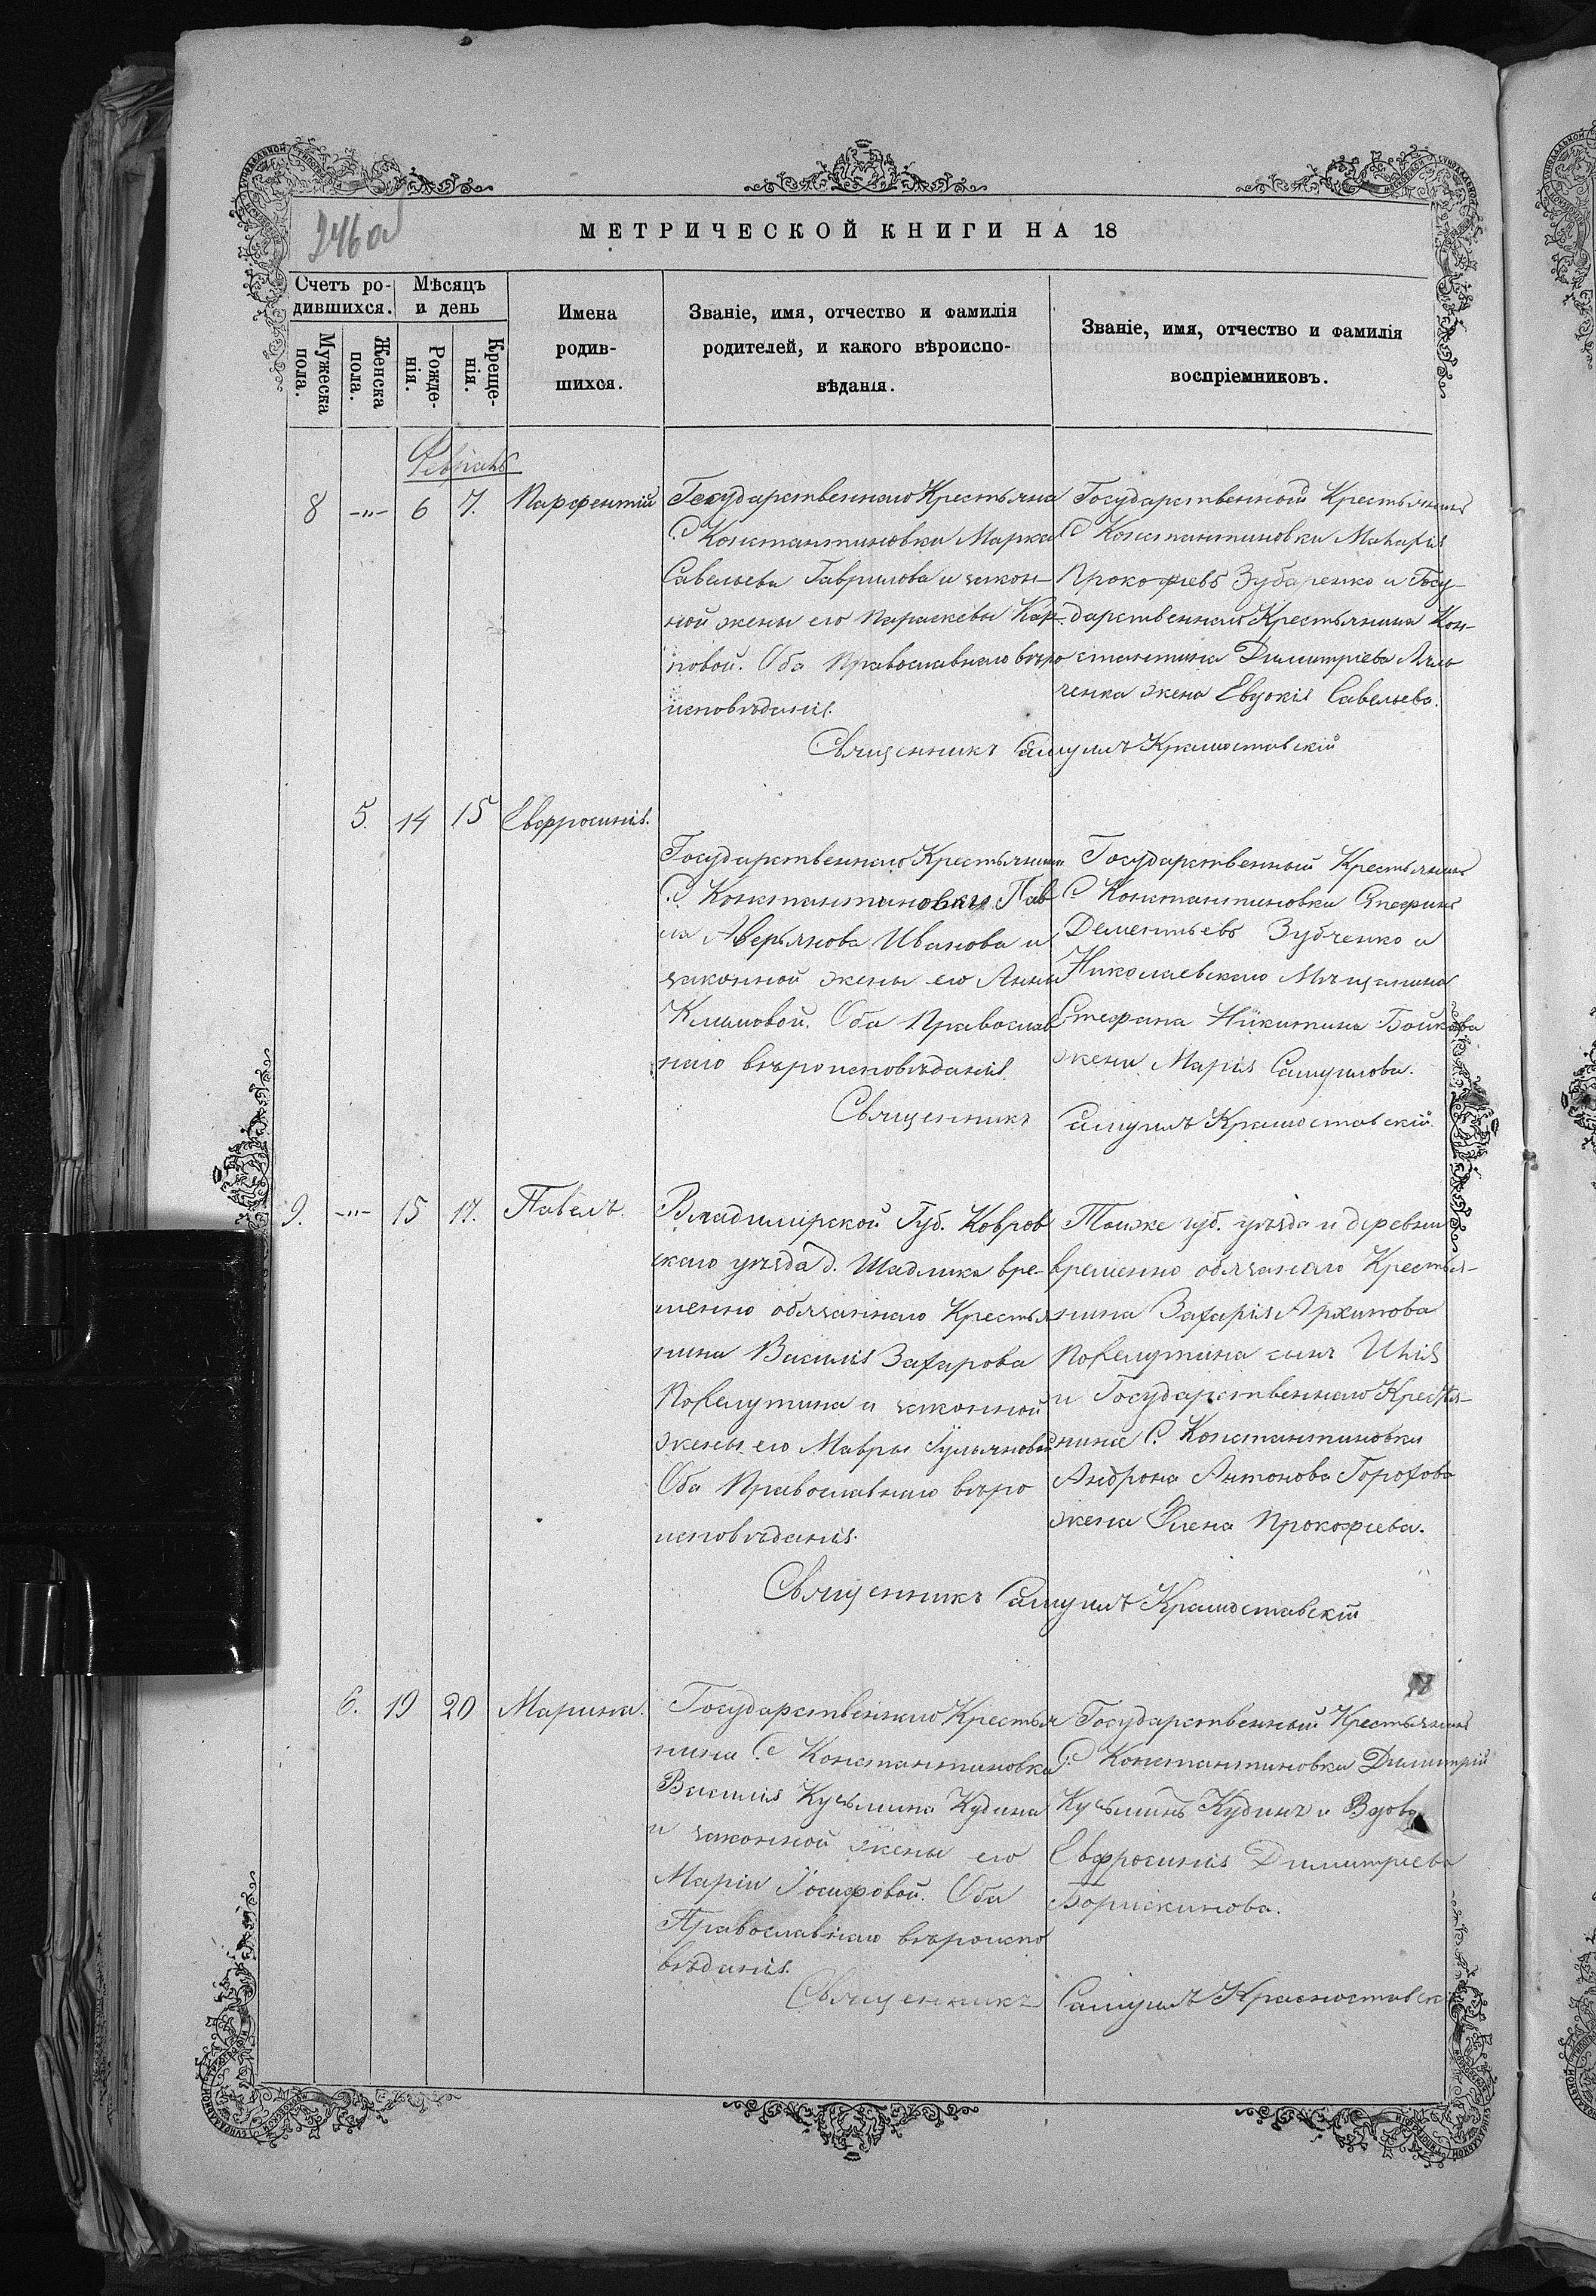 246 об
МЕТРИЧЕСКОЙ КНИГИ НА 18
Счетъ ро-
дившихся.
Мѣсяцъ
и день
Мужеска
пола.
Женска
пола.
Рожде-
нія.
Креще-
нія.
Имена
родив-
шихся.
Званіе, имя, отчество и фамилія
родителей, и какого вѣроиспо-
вѣданія.
Званіе, имя, отчество и фамилія
воспріемниковъ.
Февраль
8 -"- 6 7. Парфентій
Государственнаго Крестьяна
С Константиновки Марка
Савельева Гаврилова и закон-
ной жены его Параскевы Кар-
повой. Оба Православнаго вѣро
исповѣданія.
Государственной Крестьянинъ
С Константиновки Макарій
Прокофіевъ Зубаренко и Госу-
дарственнаго Крестьянина Кон-
стантина Димитріева
ченка жена Евдокія Савельева.
Священникъ Самуилъ Красноставскій
5. 14 15 Евфросинія.
Государственнаго Крестьянина
С. Константиновки Пав-
ла Аверьянова Иванова и
законной жены его Анны
Климовой. Оба Православ
наго вѣроисповѣданія.
Государственный Крестьянинъ
С Константиновки Стефанъ
Дементьевъ Зубченко и
Николаевскаго Мѣщанина
Стефана Никитина Бойкова
жена Марія Самуилова.
Священникъ Самуилъ Красноставскій.
9. -"- 15 17. Павелъ.
Владимірской Губ. Ковров
скаго уѣзда д. Шадлика вре-
менно обязаннаго Крестья
нина Василія Захарова
Похелутина и законной
жены его Мавры Гульяновой
Оба Православнаго вѣро
исповѣданія.
Тойже губ. уѣзда и деревни
временно обязаннаго Крестья-
нина Захарія Архипова
Похелутина сынъ
и Государственнаго Крестья-
нина С. Константиновки
Андрона Антонова Горохова
жена Елена Прокофіева.
Священникъ Самуилъ Красноставскій
6. 19 20 Марина.
Государственнаго Крестья
нина С Константиновки
Василія Кузьмина Кудина
и законной жены его
Маріи Іосифовой. Оба
Православнаго вѣроиспо
вѣданія.
Государственный Крестьянинъ
С. Константиновки Димитрій
Кузьминъ Кудинъ и Вдова
Евфросинія Димитріева
Борискинова.
Священникъ Самуилъ Красноставск